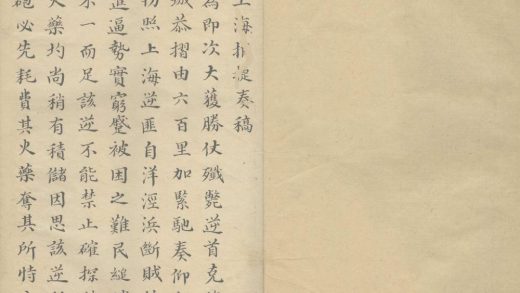 上海捷奏稿
為即次大獲勝仗殲斃逆首克
恭摺由六百里加緊馳奏仰
照上海逆匪自洋涇浜斷賊
進逼勢實窮蹙被困之難民縋
不一而足該逆不能禁止確探
火藥均尚稍有積儲因思該逆
砲必先耗費其火藥奪其所恃